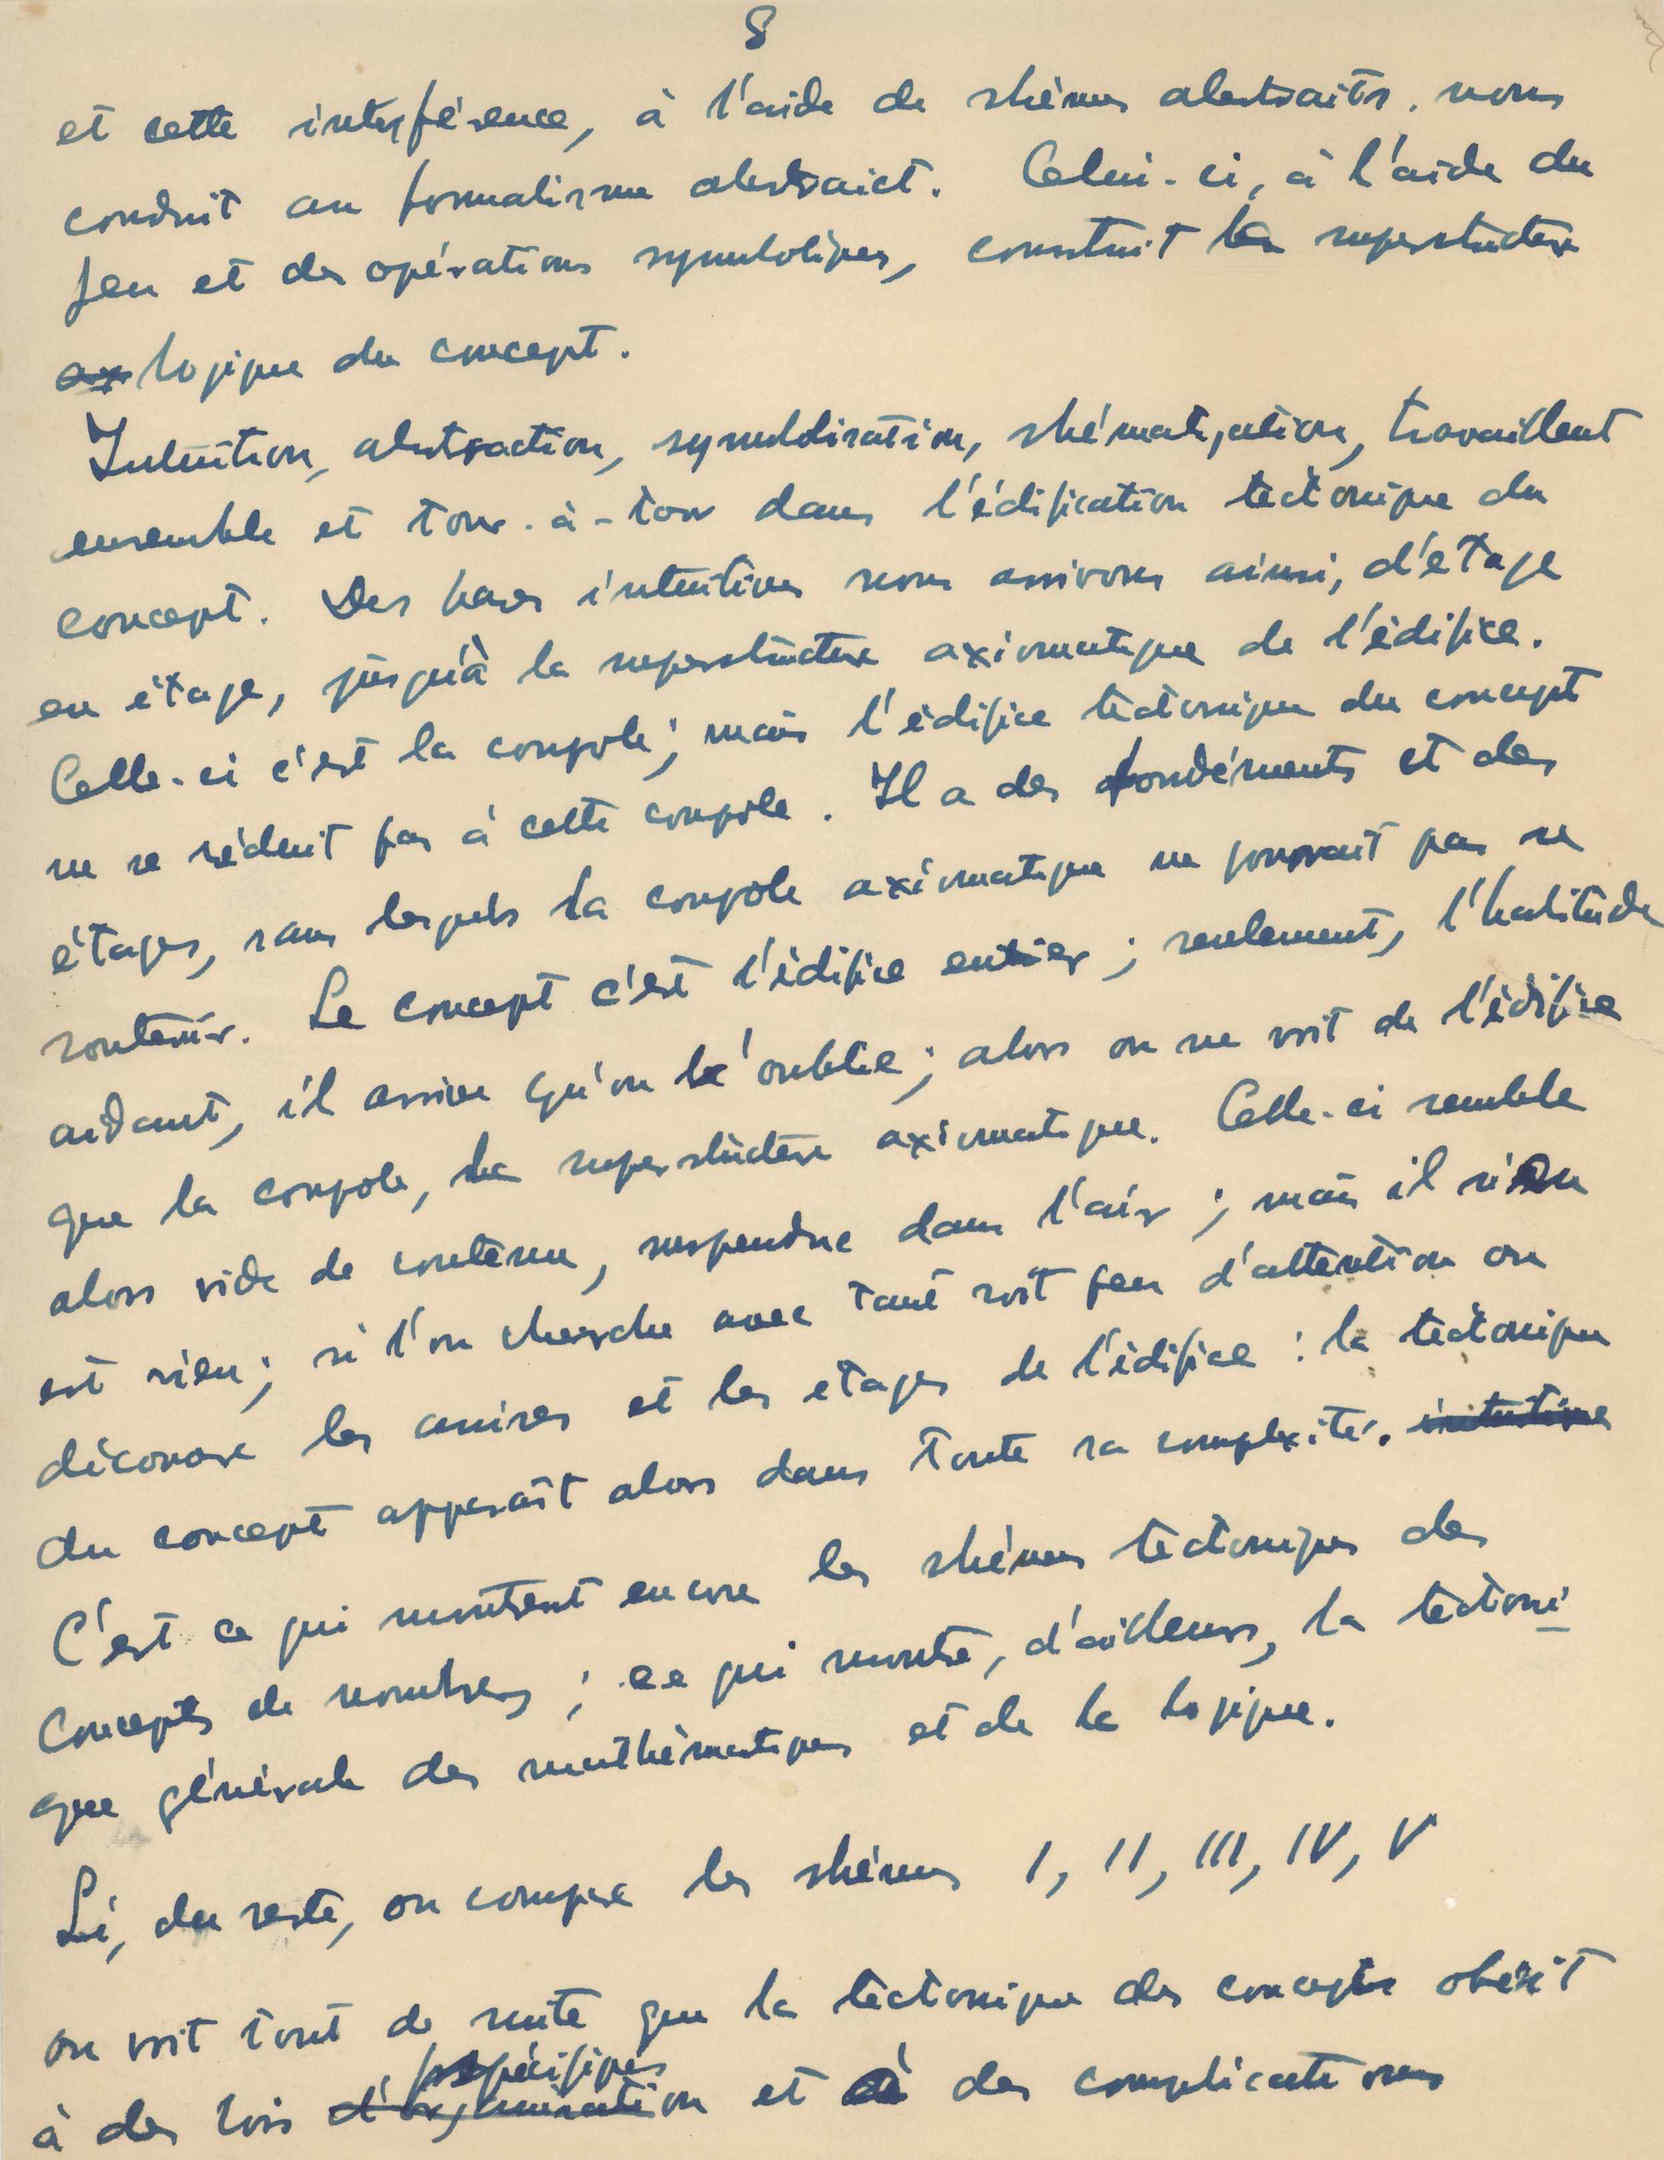 8
et cette interférence, à l'aide de shèmes abstraits, nous
conduit au formalisme abstraict. Celui-ci, à l'aide du
jeu et des opérations symboliques, construit la superstructure
logique du concept.
Intuition, abstraction, symbolisation, shématisation, travaillent
ensemble et tour-à-tour dans l'édification tectonique du
concept. Des bases intuitives nous arrivons ainsi, d'étage
en étage, jusqu'à la superstructure axiomatique de l'édifice.
Celle-ci c'est la coupole; mais l'édifice tectonique du concept
ne se réduit pas à cette coupole. Il a des fondéments et des
étages, sans lesquels la coupole axiomatique ne pourrait pas se
soutenir. Le concept c'est l'édifice entier; seulement, l'habitude
aidant, il arrive qu'on l'oublie; alors on ne voit de l'édifice
que la coupole, la superstructure axiomatique. Celle-ci semble
alors vide de contenu, suspendue dans l'air; mais il n'en
est rien; si l'on cherche avec tant soit peu d'attention on
découvre les assises et les etages de l'édifice: la tectonique
du concept apparaît alors dans toute sa complexité. intuitive
C'est ce qui montrent encore les shémes tectoniques des
concepts de nombres; ce qui montre, d'ailleurs, la tectoni-
que générale des mathématiques et de la logique.
Si, du reste, on compare les shémes I, II, III, IV, V
on voit tout de suite que la tectonique des concepts obéit
spécifiques
à des lois d'organisation et à des complications